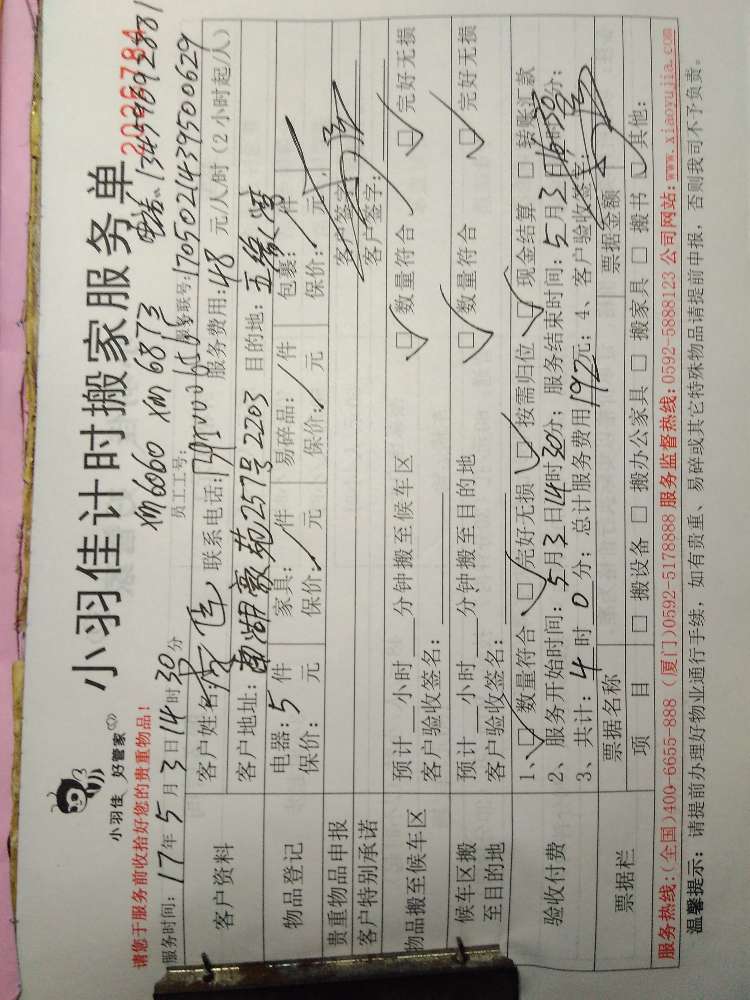 小羽佳 好管家
小羽佳计时搬家服务单
2026784
请您于服务前收拾好您的贵重物品！
xm6060 xm6873
电话：13459692881
服务时间：17年5月3日14时30分
员工工号：
服务联号：1705021439500629
客户资料
客户姓名：
联系电话：
服务费用：48元/人/时（2小时起/人）
客户地址：南湖豪苑257号2203
目的地：五缘湾
物品登记
电器：5件 家具： 件 易碎品： 件 包裹： 件
保价： 元 保价： 元 保价： 元 保价： 元
贵重物品申报
客户签字：
客户特别承诺
客户签字：
物品搬至候车区
预计 小时 分钟搬至候车区 □数量符合 □完好无损
客户验收签名：
候车区搬至目的地
预计 小时 分钟搬至目的地 □数量符合 □完好无损
客户验收签名：
验收付费
1、□数量符合 □完好无损 □按需归位 □现金结算 □转账汇款
2、服务开始时间：5月3日14时30分；服务结束时间：5月3日 时30分；
3、共计：4时0分；总计服务费用192元；4、客户验收签字：
票据栏
票据名称 票据金额
项 目 □搬设备 □搬办公家具 □搬家具 □搬书 □其他：
服务热线：(全国)400-6655-888 (厦门)0592-5178888 服务监督热线：0592-5888123 公司网站：www.xiaoyujia.com
温馨提示：请提前办理好物业通行手续，如有贵重、易碎或其它特殊物品请提前申报，否则我司不予负责。